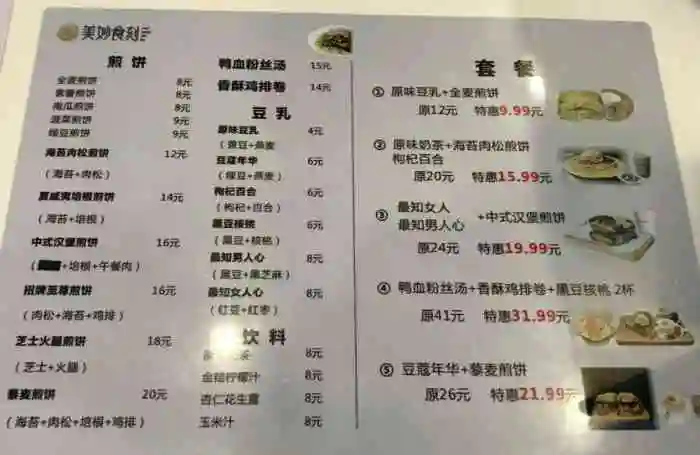 美妙食刻
煎 饼
全麦煎饼 8元
紫薯煎饼 8元
南瓜煎饼 8元
菠菜煎饼 9元
绿豆煎饼 9元
海苔肉松煎饼 12元
（海苔+肉松）
夏威夷培根煎饼 14元
（海苔+培根）
中式汉堡煎饼 16元
+培根+午餐肉）
招牌至尊煎饼 16元
（肉松+海苔+鸡排）
芝士火腿煎饼 18元
（芝士+火腿）
藜麦煎饼 20元
（海苔+肉松+培根+鸡排）
鸭血粉丝汤 15元
香酥鸡排卷 14元
豆 乳
原味豆乳 4元
（黄豆+燕麦）
豆蔻年华 6元
（绿豆+燕麦）
枸杞百合 6元
（枸杞+百合）
黑豆核桃 6元
（黑豆+核桃）
最知男人心 8元
（黑豆+黑芝麻）
最知女人心 8元
（红豆+红枣）
饮 料
茶 8元
金桔柠檬汁 8元
杏仁花生露 8元
玉米汁 8元
套 餐
① 原味豆乳+全麦煎饼
原12元 特惠9.99元
② 原味奶茶+海苔肉松煎饼
枸杞百合
原20元 特惠15.99元
③ 最知女人
最知男人心 +中式汉堡煎饼
原24元 特惠19.99元
④ 鸭血粉丝汤+香酥鸡排卷+黑豆核桃 2杯
原41元 特惠31.99元
⑤ 豆蔻年华+藜麦煎饼
原26元 特惠21.99元